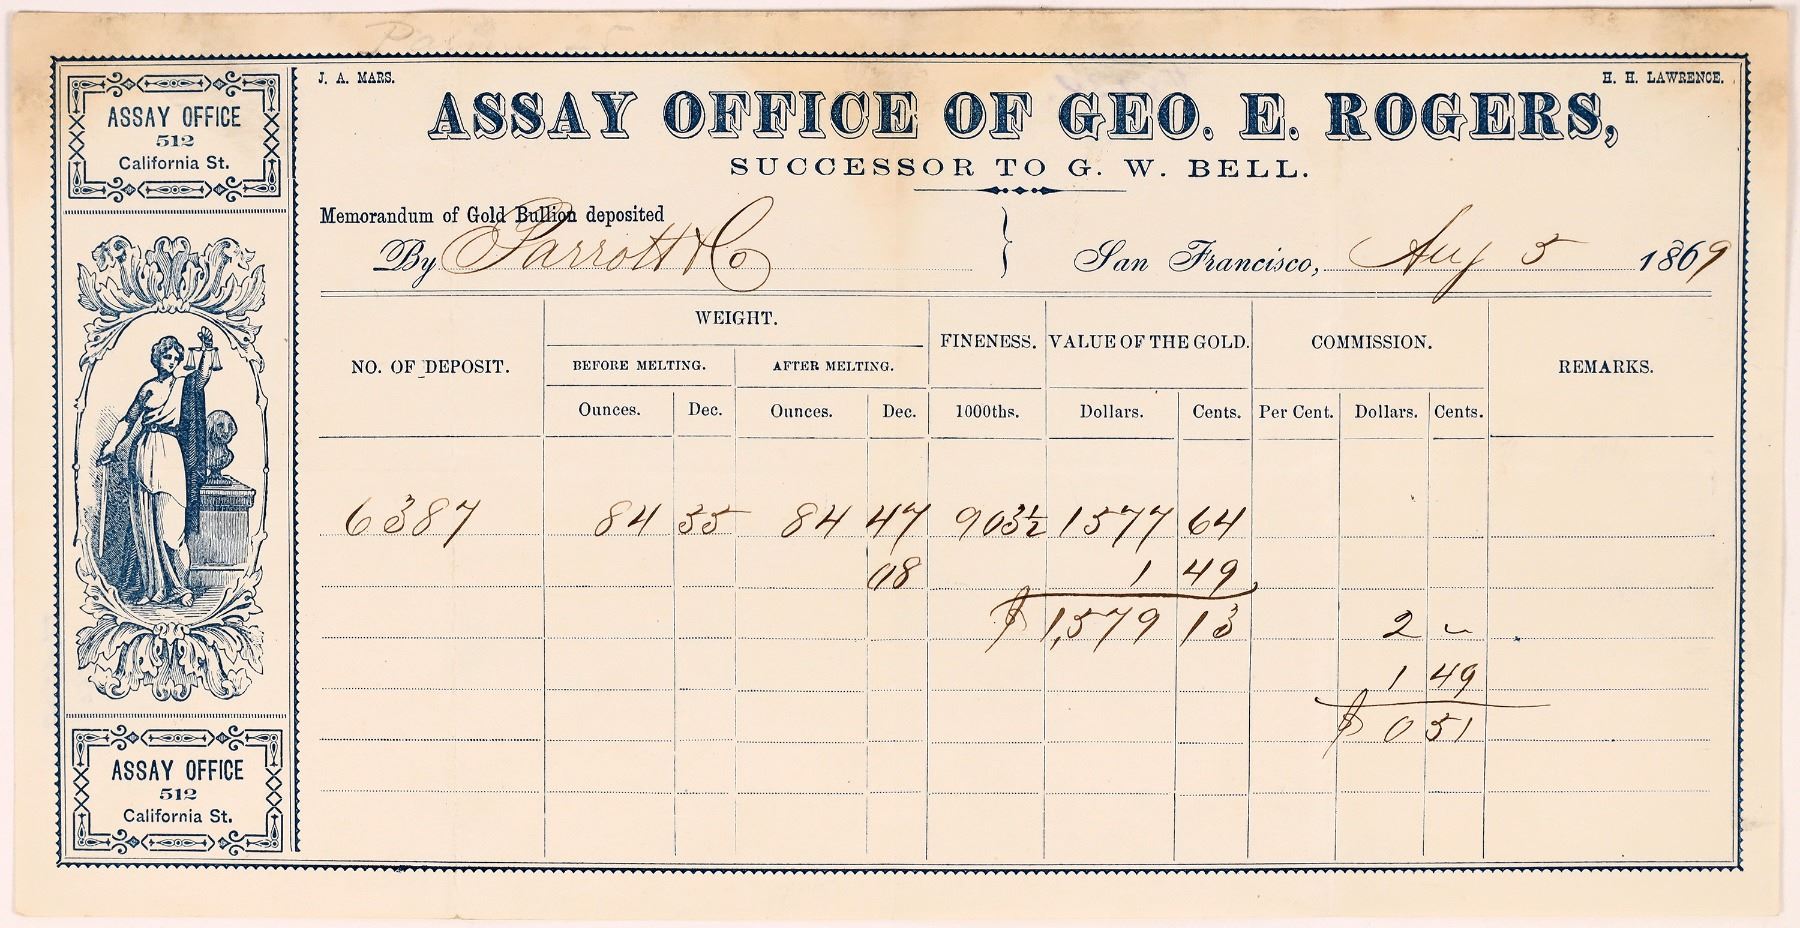 J. A. MARS.
H. H. LAWRENCE.
ASSAY OFFICE OF GEO. E. ROGERS,
SUCCESSOR TO G. W. BELL.
ASSAY OFFICE
512
California St.
Memorandum of Gold Bullion deposited
By Parrott & Co
San Francisco, Aug 5 1869
NO. OF DEPOSIT. WEIGHT. FINENESS. VALUE OF THE GOLD. COMMISSION. REMARKS.
BEFORE MELTING. AFTER MELTING.
Ounces. Dec. Ounces. Dec. 1000ths. Dollars. Cents. Per Cent. Dollars. Cents.
6387 84 35 84 47 903½ 1577 64
08 1 49
$ 1,579 13 2 ~
1 49
$ 0 51
ASSAY OFFICE
512
California St.